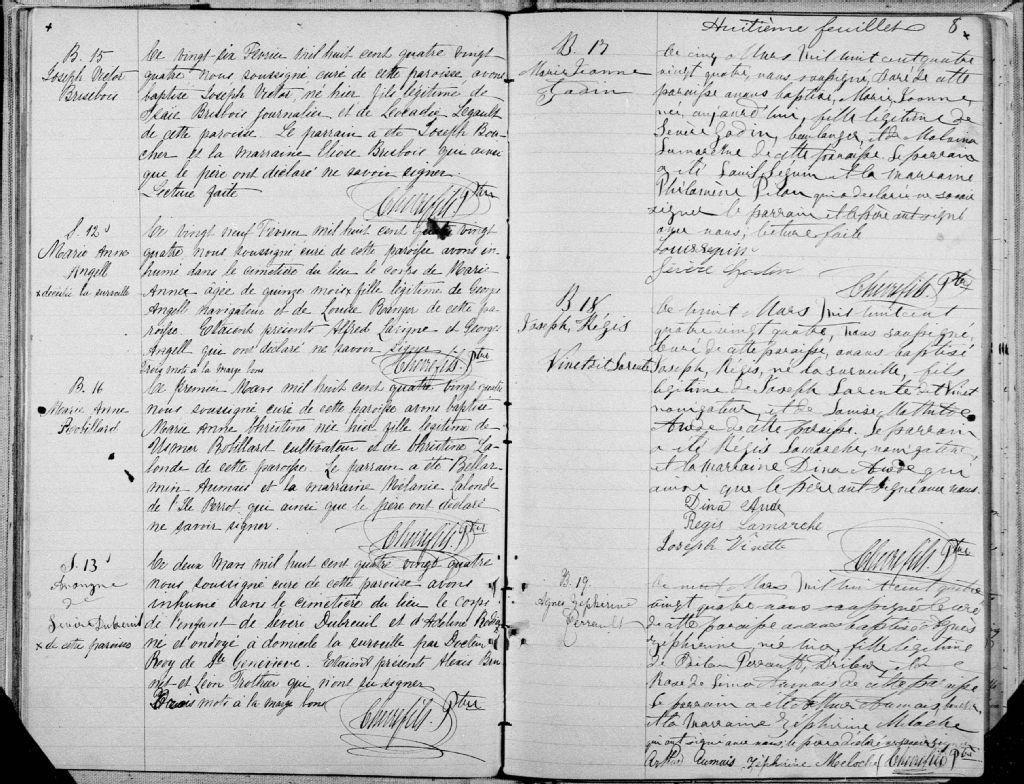 B. 15
Joseph Victor
Brisebois
Ce vingt-six Fevrier mil huit cent quatre vingt
quatre nous soussigné curé de cette paroisse avons
baptisé Joseph Victor né hier fils légitime de
Isaie Brisbois journalier et de Leocadie Legault
de cette paroisse. Le parrain a été Joseph Bou-
cher et la marraine Elïose Brisbois qui ainsi
que le père ont déclaré ne savoir signer
Lecture faite
Ptre
S. 12
Marie Anne
Angell
x décédée la surveille
Ce vingt neuf Fevrier mil huit cent quatre vingt
quatre nous soussigné curé de cette paroisse avons in-
humé dans le cimetière du lieu le corps de Marie
Anne x agée de quinze mois fille légitime de George
Angell navigateur et de Louise Branger de cette pa-
roisse. Etaient présents Alfred Lavigne et Georges
Angell qui ont déclaré ne savoir signer
Trois mots à la marge bons
Ptre
B. 16
Marie Anne
Robillard
Ce premier Mars mil huit cent quatre vingt quatre
nous soussigné curé de cette paroisse avons baptisé
Marie Anne Christina née hier fille légitime de
Robillard cultivateur et de Christine La-
londe de cette paroisse. Le parrain a été Bellar-
min Aumais et la marraine Mélanie Lalonde
de l'Ile Perrot qui ainsi que le père ont déclaré
ne savoir signer.
Ptre
S. 13
Anonyme
de
Sévère Dubreuil
x de cette paroisse
Ce deux Mars mil huit cent quatre vingt quatre
nous soussigné curé de cette paroisse avons
inhumé dans le cimetière du lieu le corps
de l'enfant de Sévère Dubreuil et d'Adeline
né et ondoyé à domicile la surveille par Docteur
de Ste Geneviève. Etaient présents Alexis Bru-
net et Léon Trottier qui n'ont su signer
mots à la marge bons
Ptre
Huitième feuillet 8
B. 17
Marie Jeanne
Godin
Ce cinq Mars mil huit cent quatre
vingt quatre, nous soussigné, Curé de cette
paroisse avons baptisé, Marie Jeanne,
née aujourd'hui, fille légitime de
Sévère Godin, boulanger, et de Malvina
Lamarche de cette paroisse. Le parrain
a été Louis Seguin et la marraine
Philomène Pilon qui a déclaré ne savoir
signer le parrain et le père ont signé
avec nous, lecture faite
Louis Seguin
Sévère Godin
Ptre
B 18
Joseph, Régis
Vinet dit Larente
Ce huit Mars mil huit cent
quatre vingt quatre, nous soussigné,
Curé de cette paroisse, avons baptisé
Joseph, Régis, né la surveille, fils
légitime de Joseph Larente dit Vinet
navigateur, et de Louise Mathilde
Aude de cette paroisse. Le parrain
a été Régis Lamarche, navigateur,
et la marraine Dina Aude qui
ainsi que le père ont signé avec nous.
Dina Aude
Régis Lamarche
Joseph Vinette
Ptre
B. 19.
Agnes Zéphirine
Perrault
Ce neuf Mars mil huit cent quatre
vingt quatre nous soussigné curé
de cette paroisse avons baptisé Agnès
Zéphirine née hier, fille légitime
de Perrault, et
Rose de Lima Aumais de cette paroisse
Le parrain a été Arthur Aumais
et la marraine Zéphirine Meloche
qui ont signé avec nous, le père a déclaré ne savoir signer
Arthur Aumais Zéphirine Meloche Ptre